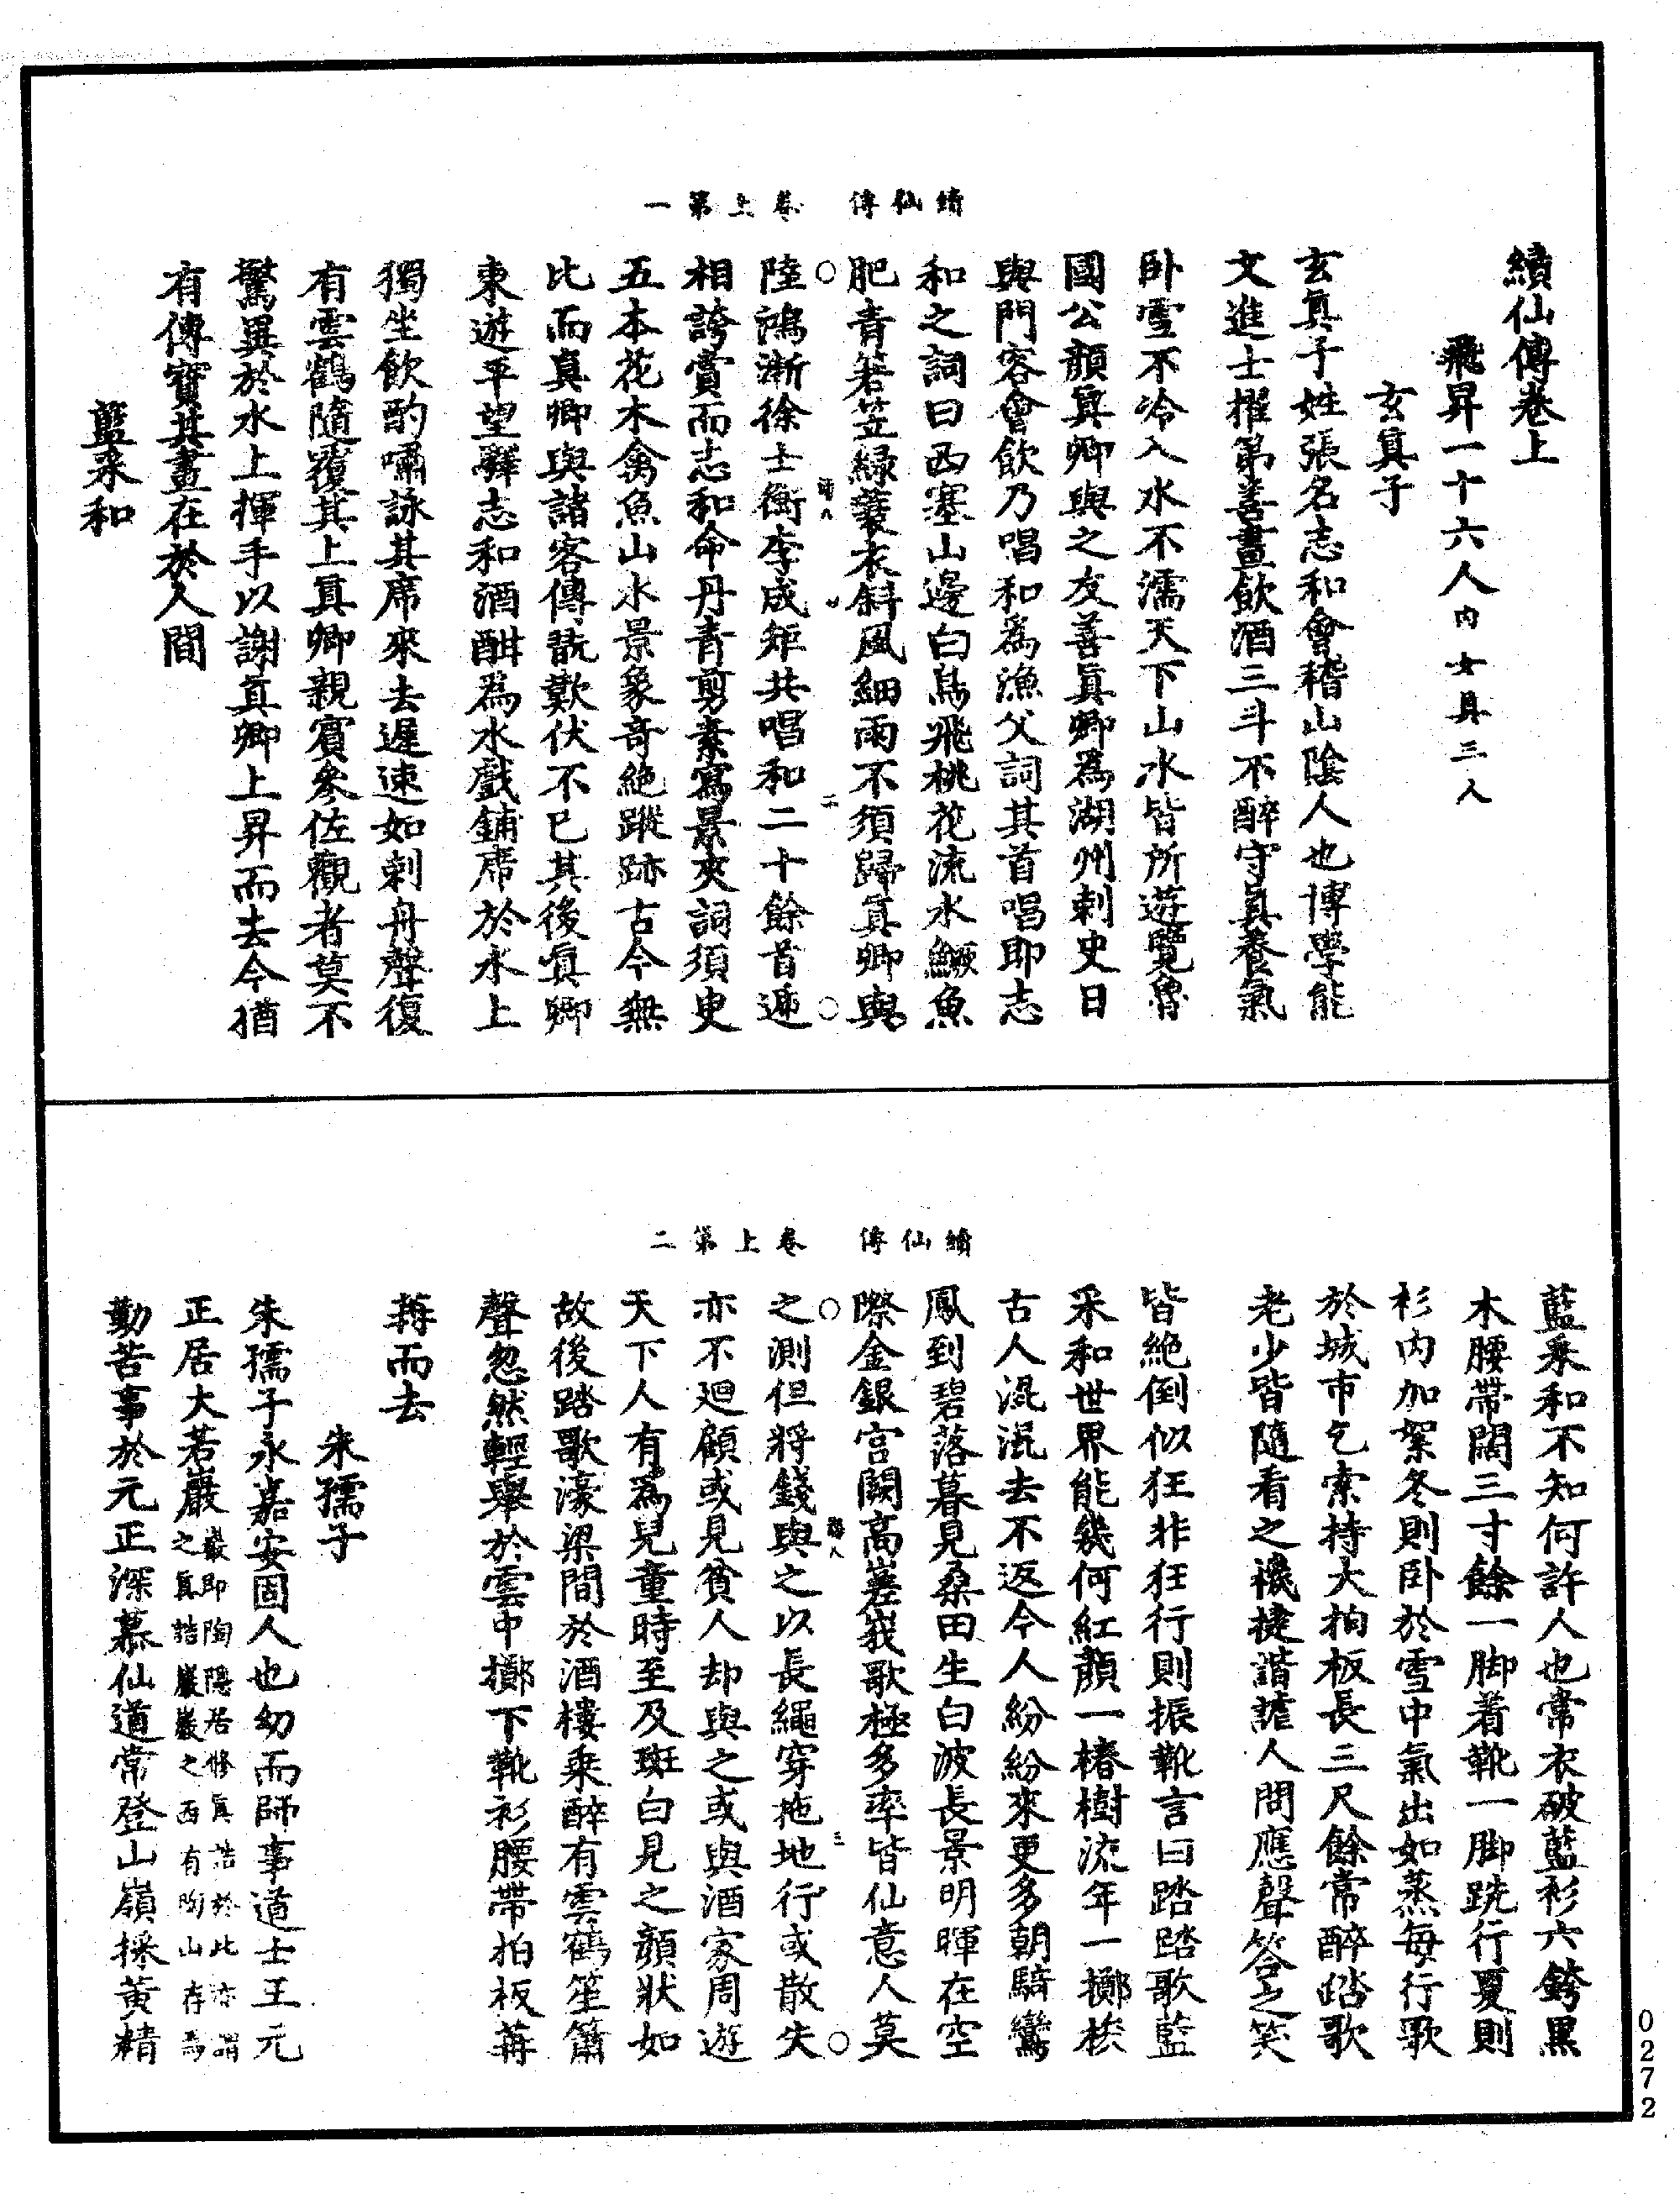 續仙傳卷上
飛昇一十六人內女真三人
玄真子
玄真子姓張名志和會稽山陰人也博學能
文進士擢第善畫飲酒三斗不醉守真養氣
卧雪不冷入水不濡天下山水皆所遊覽魯
國公顏真卿與之友善真卿為湖州刺史日
與門客會飲乃唱和為漁父詞其首唱即志
和之詞曰西塞山邊白鳥飛桃花流水鱖魚
肥青箬笠緑蓑衣斜風細雨不須歸真卿與
續仙傳 卷上第一
二
陸鴻漸徐士衡李成矩共唱和二十餘首遞
相誇賞而志和命丹青剪素寫景夾詞須臾
五本花木禽魚山水景象奇絶蹤跡古今無
比而真卿與諸客傳翫歎伏不已其後真卿
東遊平望驛志和酒酣為水戲鋪席於水上
獨坐飲酌嘯詠其席來去遲速如刺舟聲復
有雲鶴隨覆其上真卿親賓參佐觀者莫不
驚異於水上揮手以謝真卿上昇而去今猶
有傳寶其畫在於人間
藍采和
藍采和不知何許人也常衣破藍衫六銙黑
木腰帶闊三寸餘一脚着靴一脚跣行夏則
衫内加絮冬則卧於雪中氣出如蒸每行歌
於城市乞索持大拍板長三尺餘常醉踏歌
老少皆隨看之機捷諧謔人問應聲答之笑
皆絶倒似狂非狂行則振靴言曰踏踏歌藍
采和世界能幾何紅顏一椿樹流年一擲梭
古人混混去不返今人紛紛來更多朝騎鸞
鳳到碧落暮見桑田生白波長景明暉在空
際金銀宫闕高嵳峩歌極多率皆仙意人莫
續仙傳 卷上第二
三
之測但將錢與之以長繩穿拖地行或散失
亦不迴顧或見貧人却與之或與酒家周遊
天下人有為兒童時至及斑白見之顏狀如
故後踏歌濠梁間於酒樓乘醉有雲鶴笙簫
聲忽然輕舉於雲中擲下靴衫腰帶拍板冉
冉而去
朱孺子
朱孺子永嘉安固人也幼而師事道士王元
正居大若巖巖即陶隱居修真誥於此亦謂之真誥巖巖之西有陶山存焉
勤苦事於元正深慕仙道常登山嶺採黄精
0272